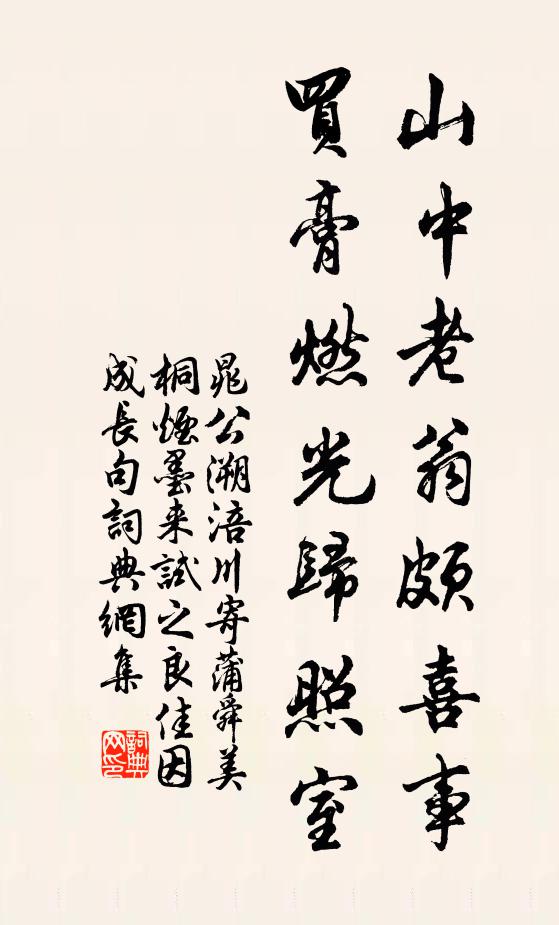 山中老翁頗喜事
買膏燃光歸照室
晁公溯涪川寄蒲舜美
桐煙墨来試之良佳因
成長句詞典網集
詞典
网印